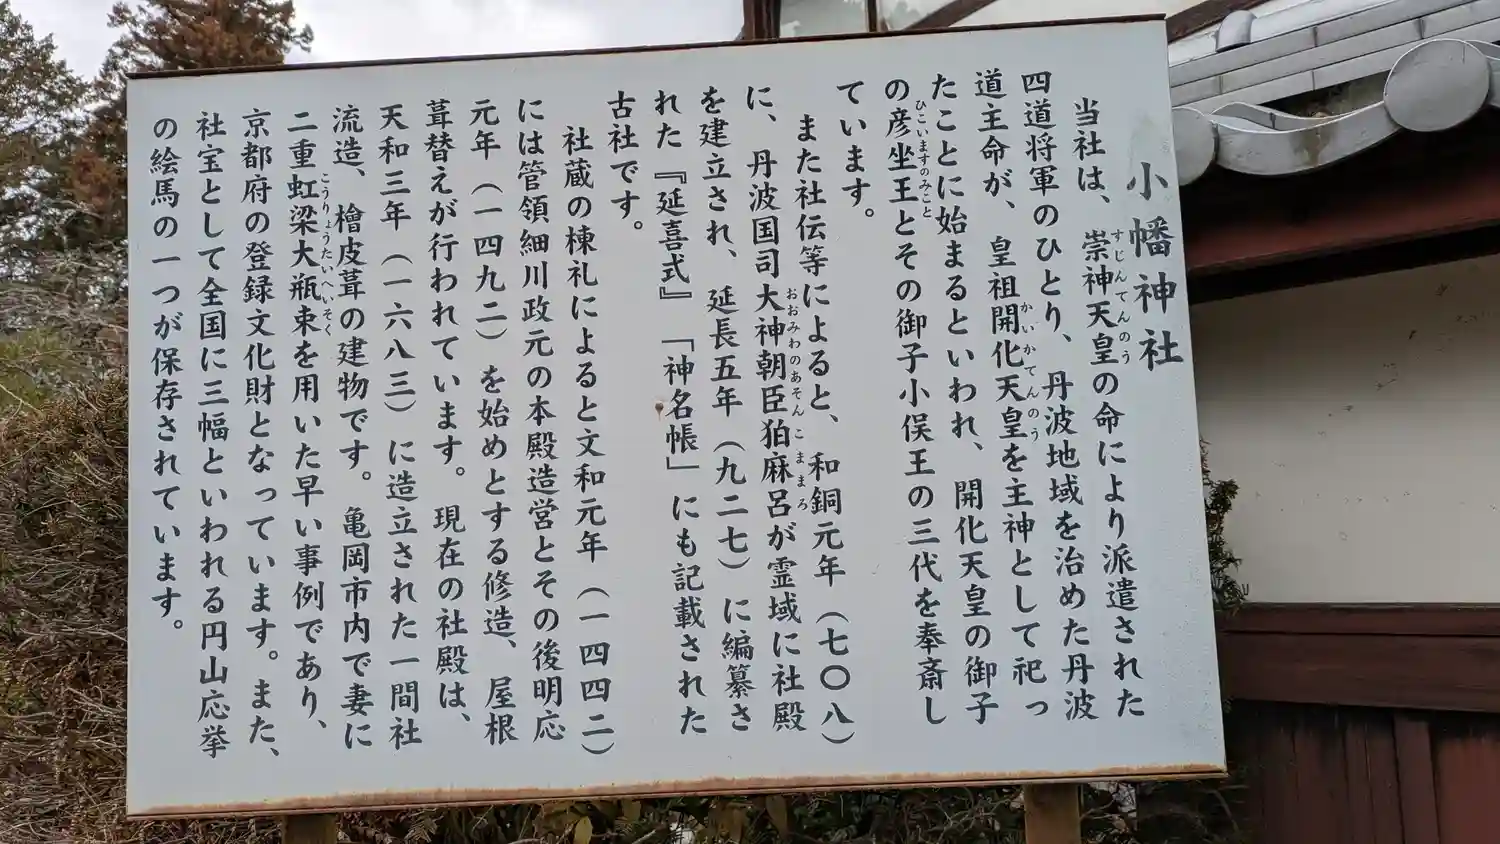 小幡神社
当社は、崇神天皇の命により派遣された
すじんてんのう
四道将軍のひとり、丹波地域を治めた丹波
道主命が、皇祖開化天皇を主神として祀っ
かいかてんのう
たことに始まるといわれ、開化天皇の御子
の彦坐王とその御子小俣王の三代を奉斎し
ひこいますのみこと
ています。
また社伝等によると、和銅元年（七〇八）
に、丹波国司大神朝臣狛麻呂が霊域に社殿
おおみわのあそんこままろ
を建立され、延長五年（九二七）に編纂さ
れた『延喜式』「神名帳」にも記載された
古社です。
社蔵の棟礼によると文和元年（一四四二）
には管領細川政元の本殿造営とその後明応
元年（一四九二）を始めとする修造、屋根
葺替えが行われています。現在の社殿は、
天和三年（一六八三）に造立された一間社
流造、檜皮葺の建物です。亀岡市内で妻に
二重虹梁大瓶束を用いた早い事例であり、
こうりょうたいへいそく
京都府の登録文化財となっています。また、
社宝として全国に三幅といわれる円山応挙
の絵馬の一つが保存されています。